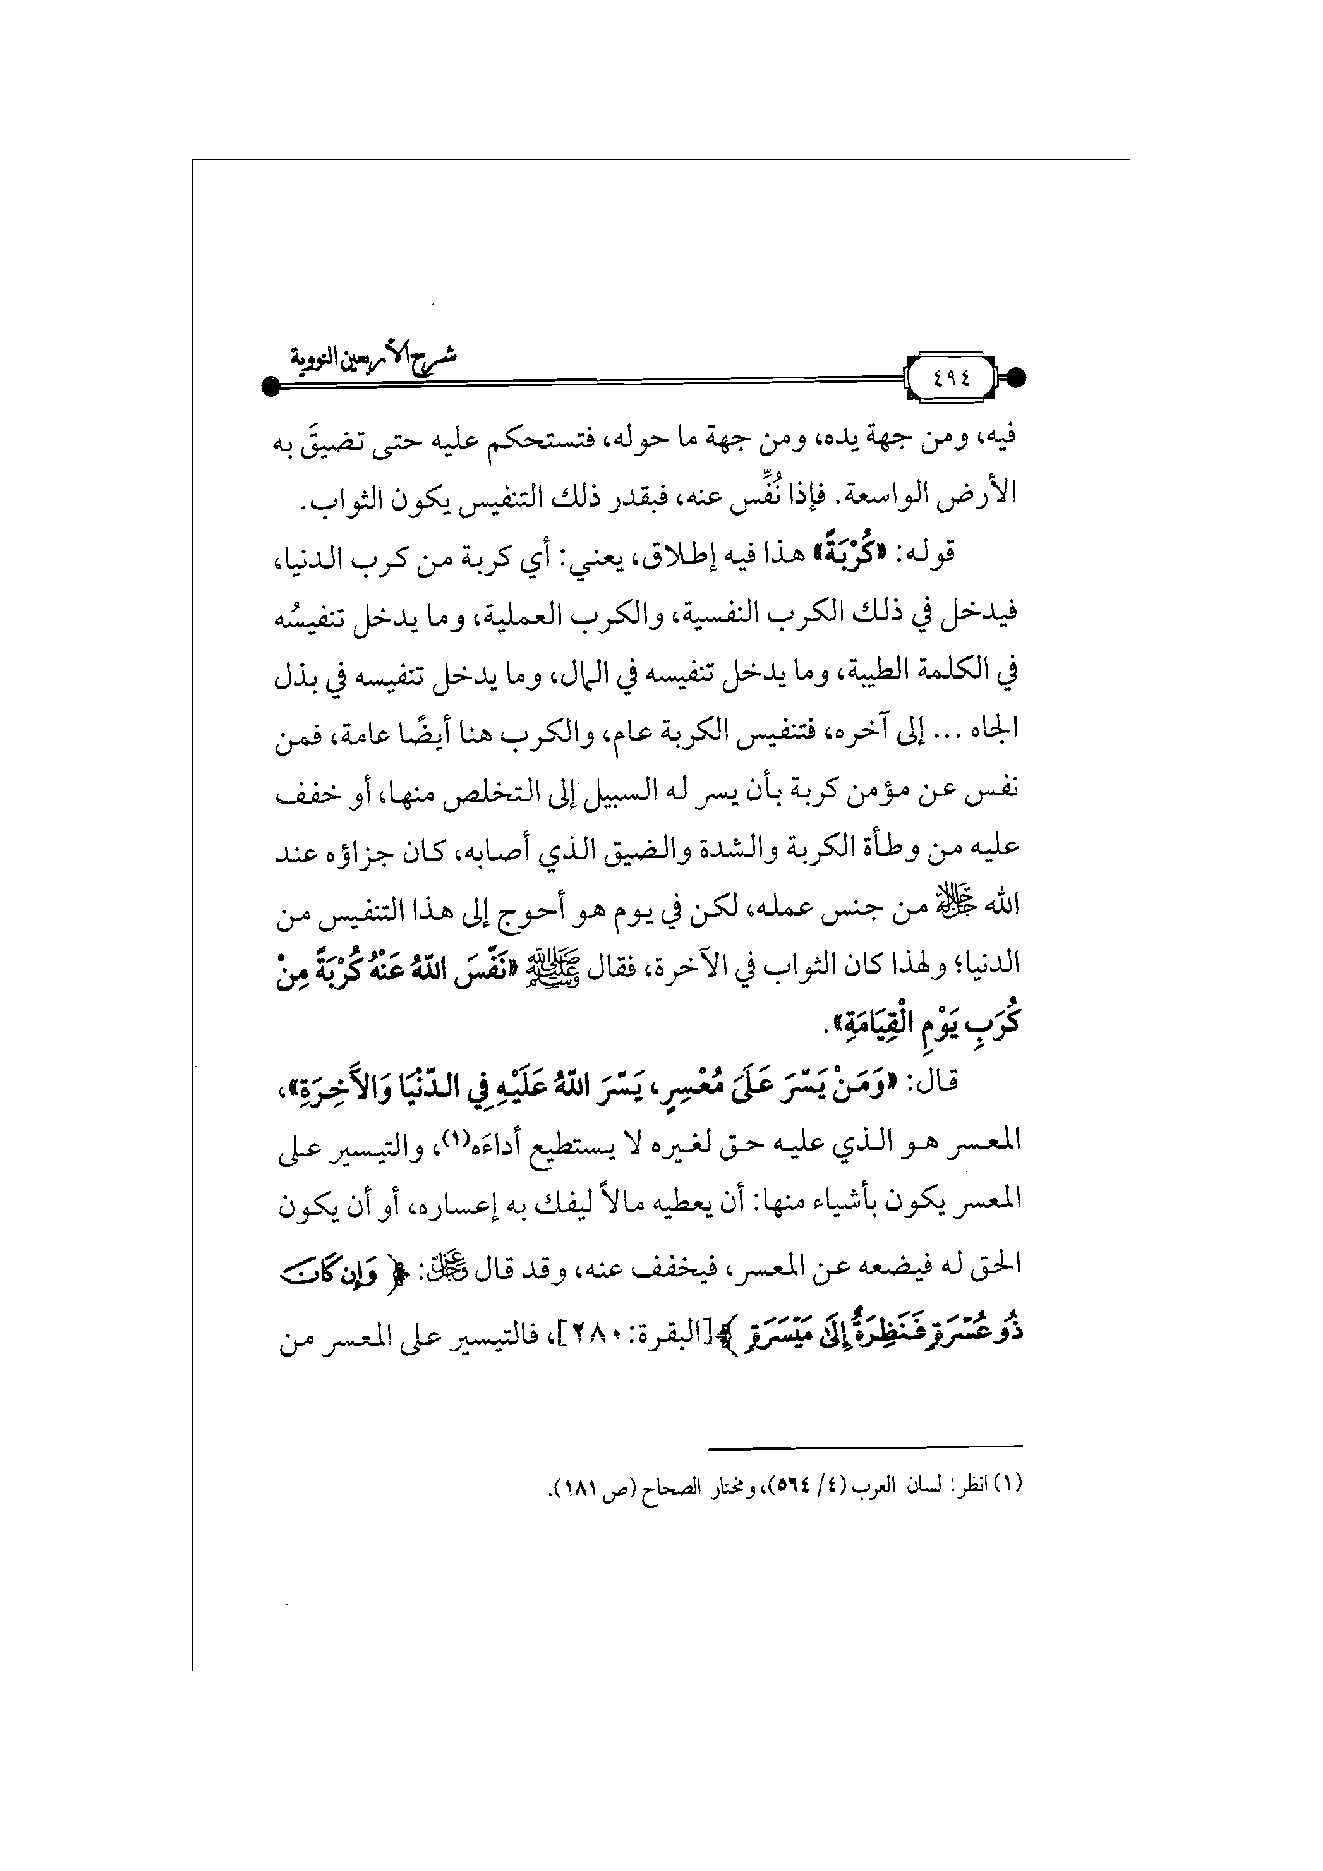 شرح الأربعين النووية
٤٩٤
فيه، ومن جهة يده، ومن جهة ما حوله، فتستحكم عليه حتى تضيقَ به
الأرض الواسعة. فإذا نُفِّس عنه، فبقدر ذلك التنفيس يكون الثواب.
قوله: «كُرْبَةً» هذا فيه إطلاق، يعني: أي كربة من كرب الدنيا،
فيدخل في ذلك الكرب النفسية، والكرب العملية، وما يدخل تنفيسُه
في الكلمة الطيبة، وما يدخل تنفيسه في المال، وما يدخل تنفيسه في بذل
الجاه ... إلى آخره، فتنفيس الكربة عام، والكرب هنا أيضًا عامة، فمن
نفس عن مؤمن كربة بأن يسر له السبيل إلى التخلص منها، أو خفف
عليه من وطأة الكربة والشدة والضيق الذي أصابه، كان جزاؤه عند
الله ﷻ من جنس عمله، لكن في يوم هو أحوج إلى هذا التنفيس من
الدنيا؛ ولهذا كان الثواب في الآخرة، فقال ﷺ «نَفَّسَ اللهُ عَنْهُ كُرْبَةً مِنْ
كُرَبِ يَوْمِ الْقِيَامَةِ».
قال: «وَمَنْ يَسَّرَ عَلَىَ مُعْسِرٍ، يَسَّرَ اللهُ عَلَيْهِ فِي الدّنْيَا وَالآَخِرَةِ»،
المعسر هو الذي عليه حق لغيره لا يستطيع أداءَه(١)، والتيسير على
المعسر يكون بأشياء منها: أن يعطيه مالاً ليفك به إعساره، أو أن يكون
الحق له فيضعه عن المعسر، فيخفف عنه، وقد قال عز وجل: ﴿ وَإِن كَانَ
ذُو عُسْرَةٍ فَنَظِرَةٌ إِلَىٰ مَيْسَرَةٍ ﴾[البقرة: ٢٨٠]، فالتيسير على المعسر من
(١) انظر: لسان العرب (٤/ ٥٦٤)، ومختار الصحاح (ص ١٨١).